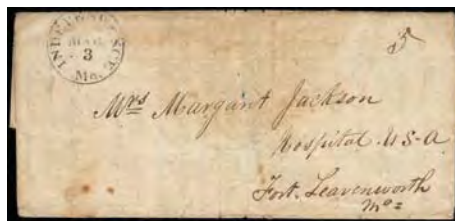 INDEPENDENCE
3
Mo.
5
Mrs Margaret Jackson
Hospital U-S-A
Fort Leavenworth
Mo=